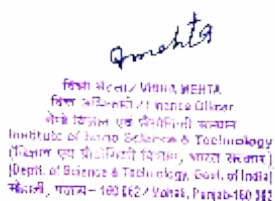 Qmehta
विभा मेहता / VIBHA MEHTA
वित्त अधिकारी / Finance Officer
नैनो विज्ञान एवं प्रौद्योगिकी संस्थान
Institute of Nano Science & Technology
(विज्ञान एवं प्रौद्योगिकी विभाग, भारत सरकार)
(Deptt. of Science & Technology, Govt. of India)
मोहाली, पंजाब – 160 062 / Mohali, Punjab-160 062